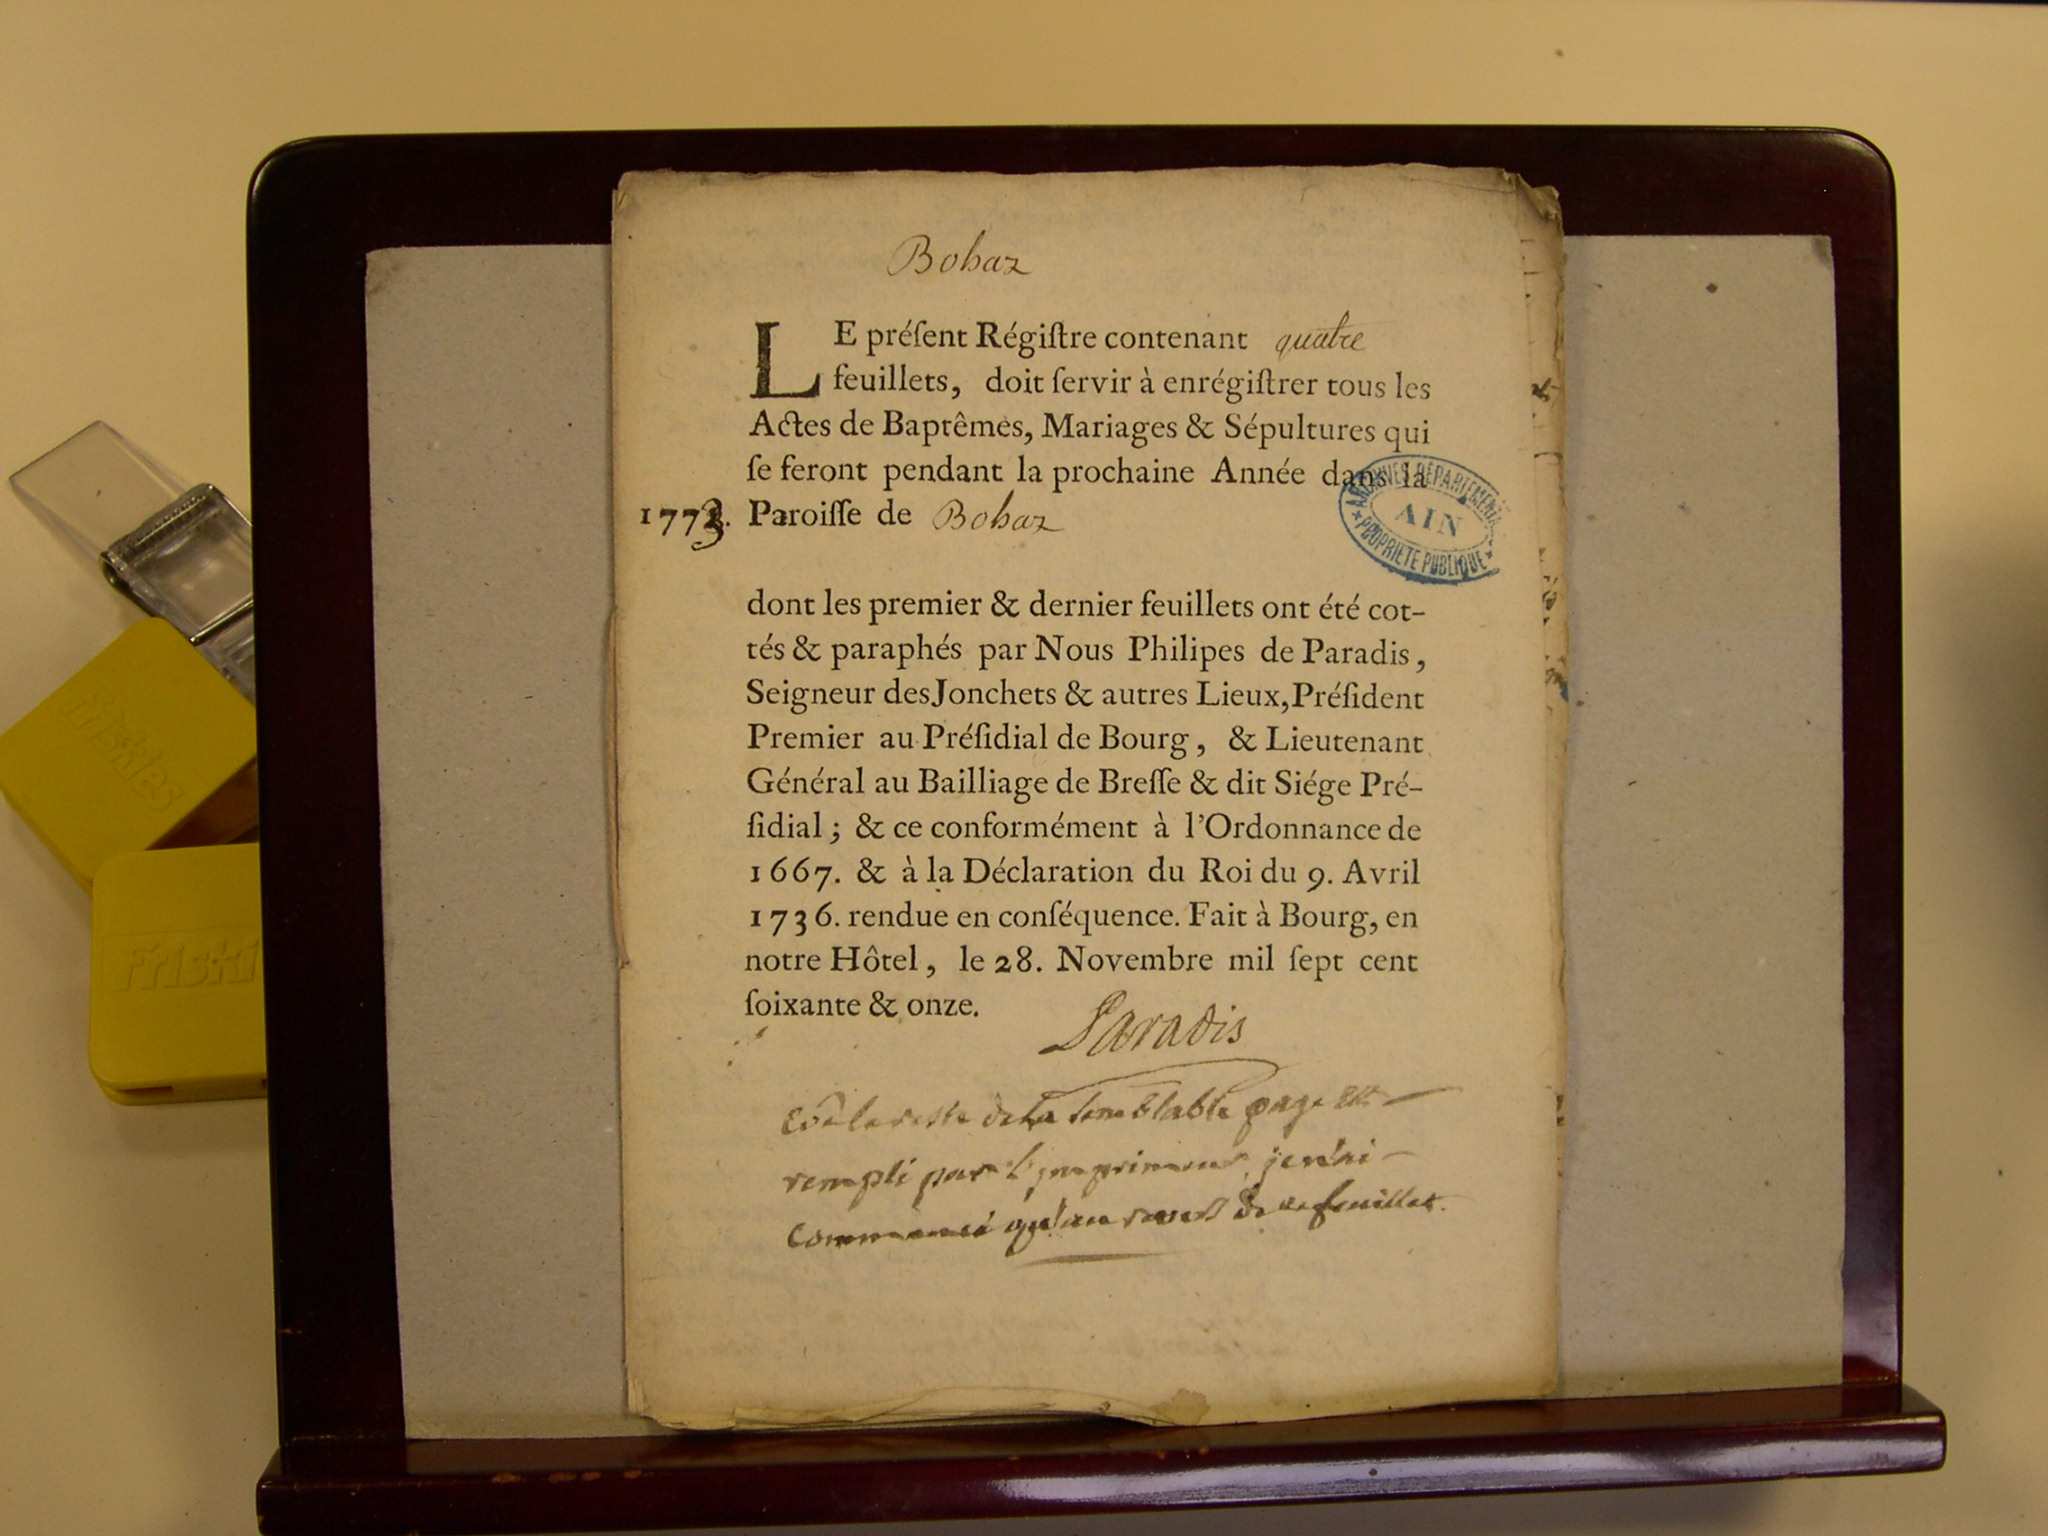 Bohaz
LE préſent Régiſtre contenant quatre
feuillets, doit ſervir à enrégiſtrer tous les
Actes de Baptêmes, Mariages & Sépultures qui
ſe feront pendant la prochaine Année dans la
1773. Paroiſſe de Bohaz
ARCHIVES DÉPARTEMENTALES
AIN
PROPRIÉTÉ PUBLIQUE
dont les premier & dernier feuillets ont été cot-
tés & paraphés par Nous Philipes de Paradis,
Seigneur des Jonchets & autres Lieux, Préſident
Premier au Préſidial de Bourg, & Lieutenant
Général au Bailliage de Breſſe & dit Siége Pré-
ſidial; & ce conformément à l'Ordonnance de
1667. & à la Déclaration du Roi du 9. Avril
1736. rendue en conſéquence. Fait à Bourg, en
notre Hôtel, le 28. Novembre mil ſept cent
ſoixante & onze.
Paradis
le reste de la semblable page est
rempli par l'imprimeur, je n'ai
commencé qu'au revers de ce feuillet.
Friskies
Friski